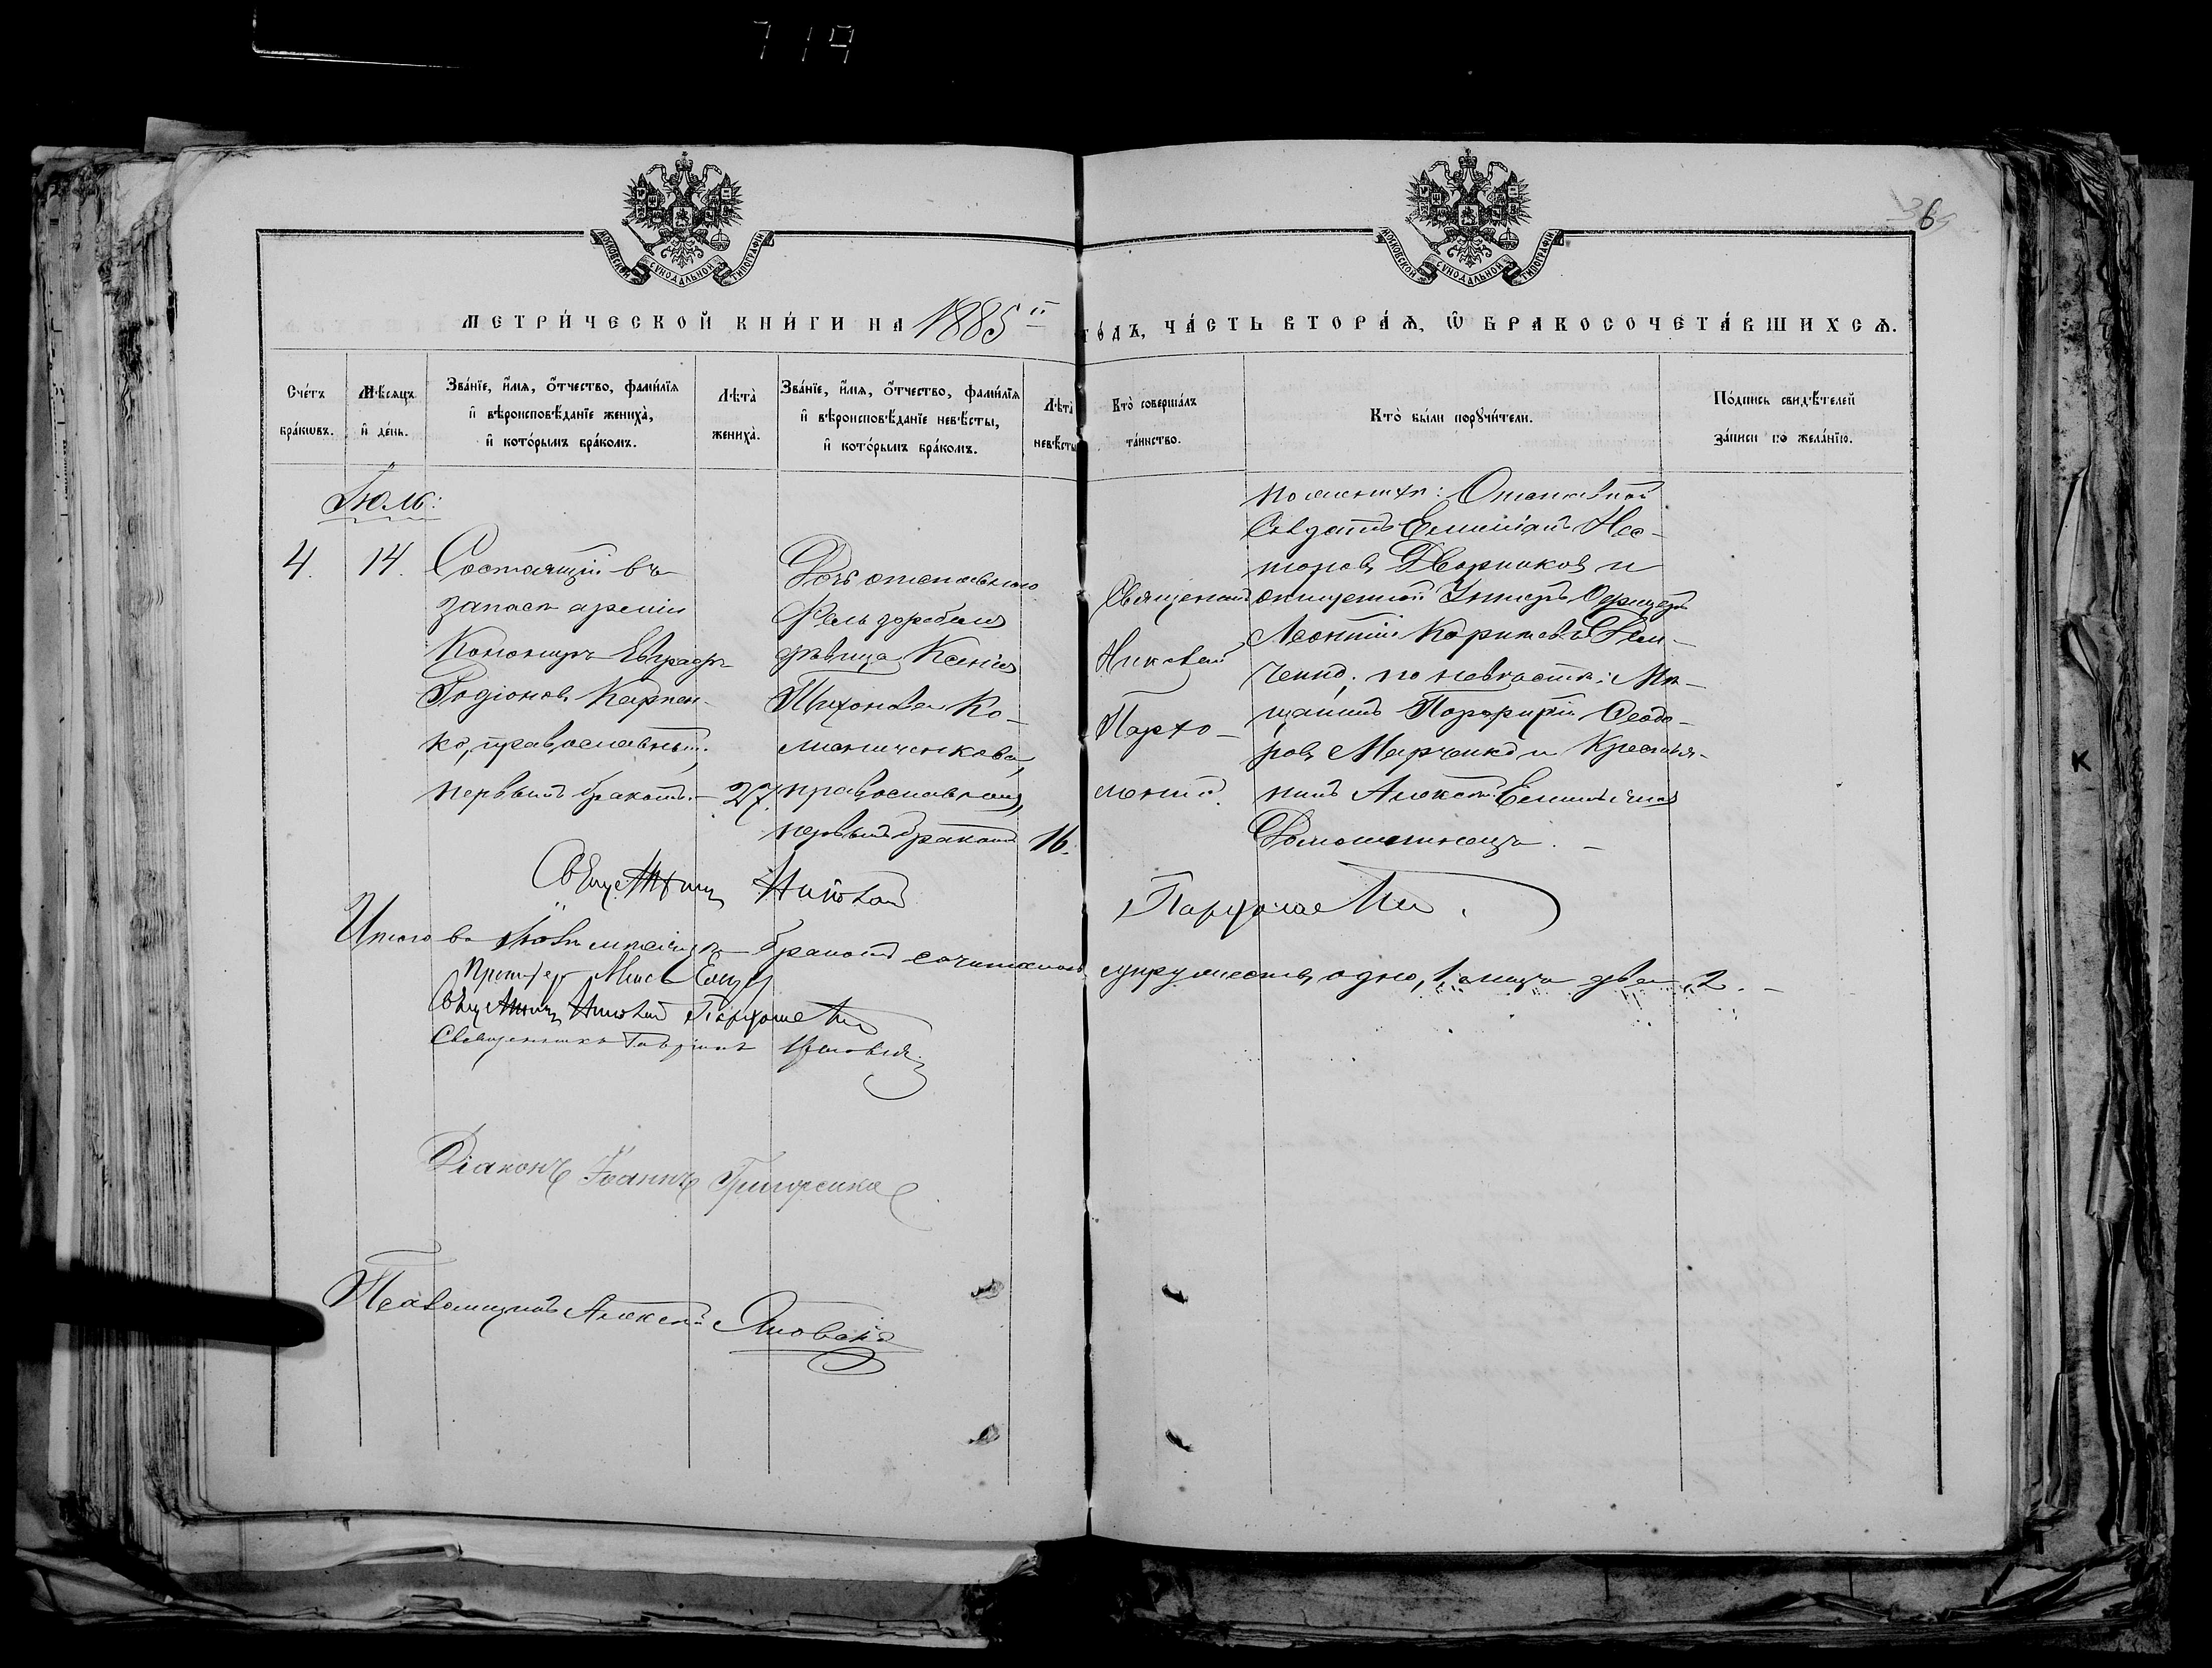 719
6
МОСКОВСКОЙ СѴНОДАЛЬНОЙ ТИПОГРАФІИ
МОСКОВСКОЙ СѴНОДАЛЬНОЙ ТИПОГРАФІИ
МЕТРИ́ЧЕСКОЙ КНИ́ГИ НА 1885й
ГО́ДЪ, ЧА́СТЬ ВТОРА́Ѧ, Ѽ БРАКОСОЧЕТА́ВШИХСѦ.
Сче́тъ бра́кѡвъ.
Мѣ́сяцъ и҆ де́нь.
Зва́нїе, и҆́мя, ѻ҆́тчество, фами́лїя
и҆ вѣроисповѣ́данїе жениха̀,
и҆ кото́рымъ бра́комъ.
Лѣта̀ жениха̀.
Зва́нїе, и҆́мя, ѻ҆́тчество, фами́лїя
и҆ вѣроисповѣ́данїе невѣ́сты,
и҆ кото́рымъ бра́комъ.
Лѣта̀ невѣ́сты
Кто̀ соверша́лъ та́инство.
Кто̀ бы́ли порꙋчи́тели.
По́дпись свидѣ́телей за́писи по жела́нїю.
Іюль:
4.
14.
Состоящій въ
запасѣ арміи
Канониръ Евграфъ
Родіоновъ Карпен-
ко, православный,
первымъ бракомъ.
27.
Дочь отставного
Фельдфебеля
дѣвица Ксенія
Тихонова Ко-
православная,
первымъ бракомъ
16.
Священникъ
Николай
Пархо-
менко.
По женихѣ: Отставной
Солдатъ Емиліанъ Нес-
торовъ Дворниковъ и
Унтеръ Офицеръ
Леонтій Дем-
ченко; по невѣстѣ: Мѣ-
щанинъ Порфирій Феодо-
ровъ Марченко и Крестья-
нинъ Алексѣй
Священникъ Николай
Пархоменко.
Итого въ Іюлѣ мѣсяцѣ бракомъ сочетано
супружество одно, 1, а лица два, 2.
Священникъ Николай Пархоменко
Священникъ Гавріилъ
Діаконъ Іоаннъ Григоренко
Псаломщикъ Алексѣй